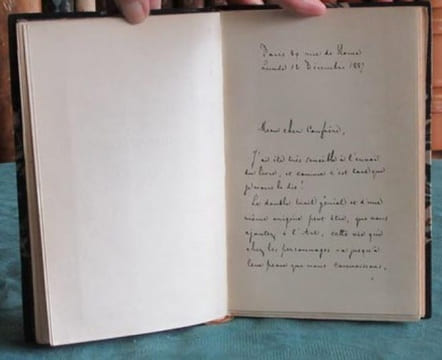 Paris 89 rue de Rome
Lundi 12 Décembre 1887
Mon cher Confrère,
J'ai été très sensible à l'envoi
du livre, et comme c'est tard que
je vous le dis!
Le double trait génial et d'une
même origine peut être, que vous
ajoutez à l'Art, cette vie qui
chez les personnages va jusqu'à
leur peau que nous connaissons,